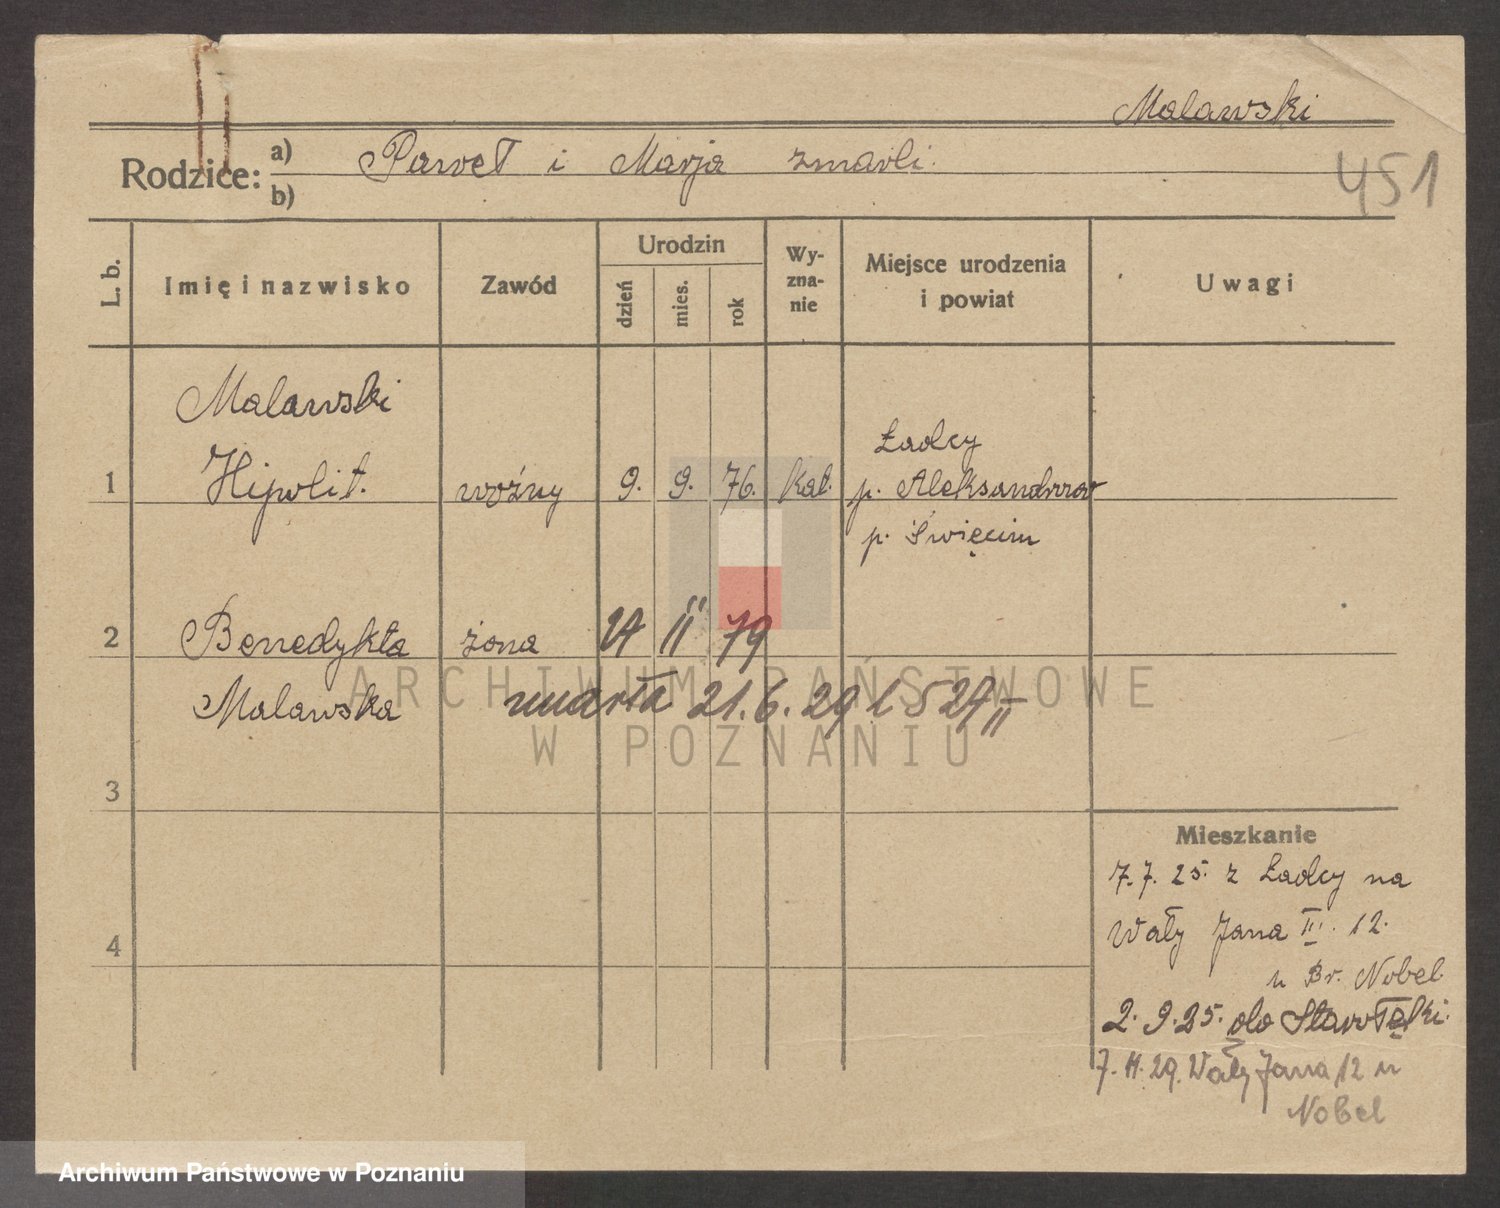 Malawski
451
Rodzice: a) Paweł i Marja zmarli.
b)
L. b.
Imię i nazwisko
Zawód
Urodzin
dzień
mies.
rok
Wy-
zna-
nie
Miejsce urodzenia
i powiat
Uwagi
Malawski
1 Hipolit. woźny 9. 9. 76. Kat.
Ładcy
p. Aleksandrow
p. Święcim
2 Benedykta żona II 79
Malawska
umarła 21.6.29
3
4
Mieszkanie
7.7.25. z Ładcy na
Wały Jana III. 12.
u Br. Nobel
2.9.25. do Starołęki.
7.11.29. Wały Jana 12 u
Nobel
ARCHIWUM PAŃSTWOWE
W POZNANIU
Archiwum Państwowe w Poznaniu